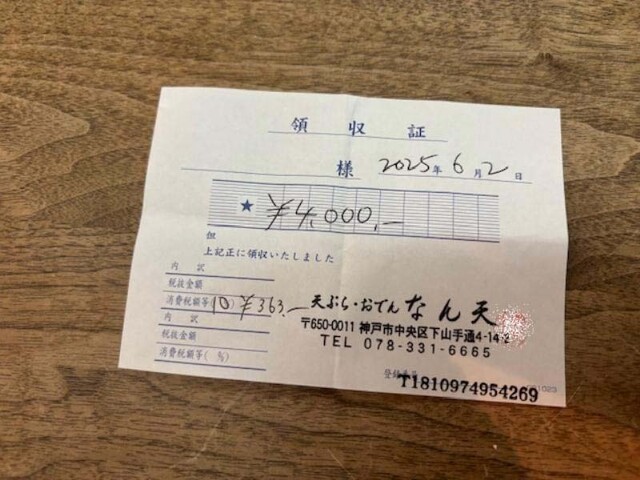 領収証
様 2025年6月2日
★ ¥4,000.-
但
上記正に領収いたしました
内訳
税抜金額
消費税額等(10) ¥363.-
内訳
税抜金額
消費税額等( %)
天ぷら・おでん なん天
〒650-0011 神戸市中央区下山手通4-14-2
TEL 078-331-6665
登録番号
T1810974954269